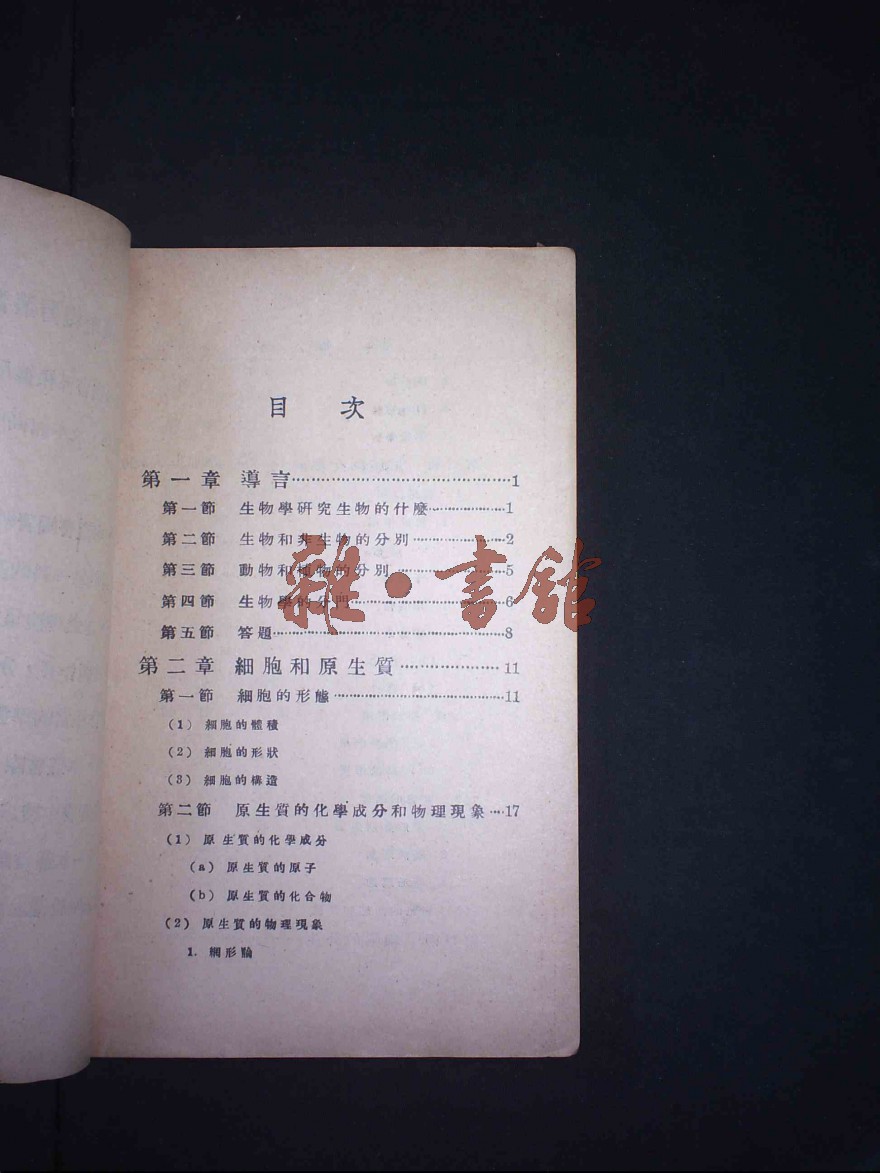 目 次
第一章 導言……………………………………1
第一節 生物學研究生物的什麼……………1
第二節 生物和非生物的分別………………2
第三節 動物和植物的分別…………………5
第四節 生物學的分門………………………6
第五節 答題…………………………………8
第二章 細胞和原生質………………11
第一節 細胞的形態…………………………11
(1) 細胞的體積
(2) 細胞的形狀
(3) 細胞的構造
第二節 原生質的化學成分和物理現象…17
(1) 原生質的化學成分
(a) 原生質的原子
(b) 原生質的化合物
(2) 原生質的物理現象
1. 網形論
雜·書館